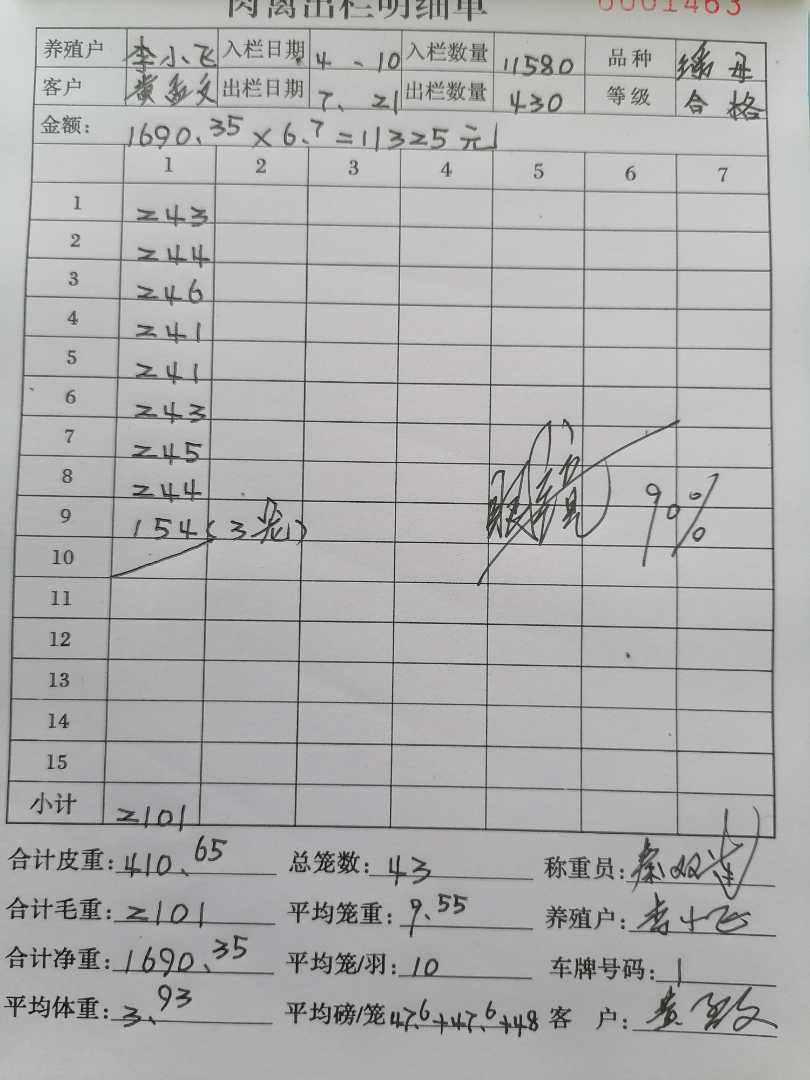 肉禽出栏明细单 0001463
养殖户 李小飞 入栏日期 4、10 入栏数量 11580 品种 瑶母
客户 黄孟文 出栏日期 7、21 出栏数量 430 等级 合格
金额: 1690.35×6.7=11325元
1 2 3 4 5 6 7
1 243
2 244
3 246
4 241
5 241
6 243
7 245
8 244
9 154(3笼)
90%
10
11
12
13
14
15
小计 2101
合计皮重: 410.65 总笼数: 43 称重员:
合计毛重: 2101 平均笼重: 9.55 养殖户: 李小飞
合计净重: 1690.35 平均笼/羽: 10 车牌号码: 1
平均体重: 3.93 平均磅/笼 47.6+47.6+48 客 户: 黄孟文